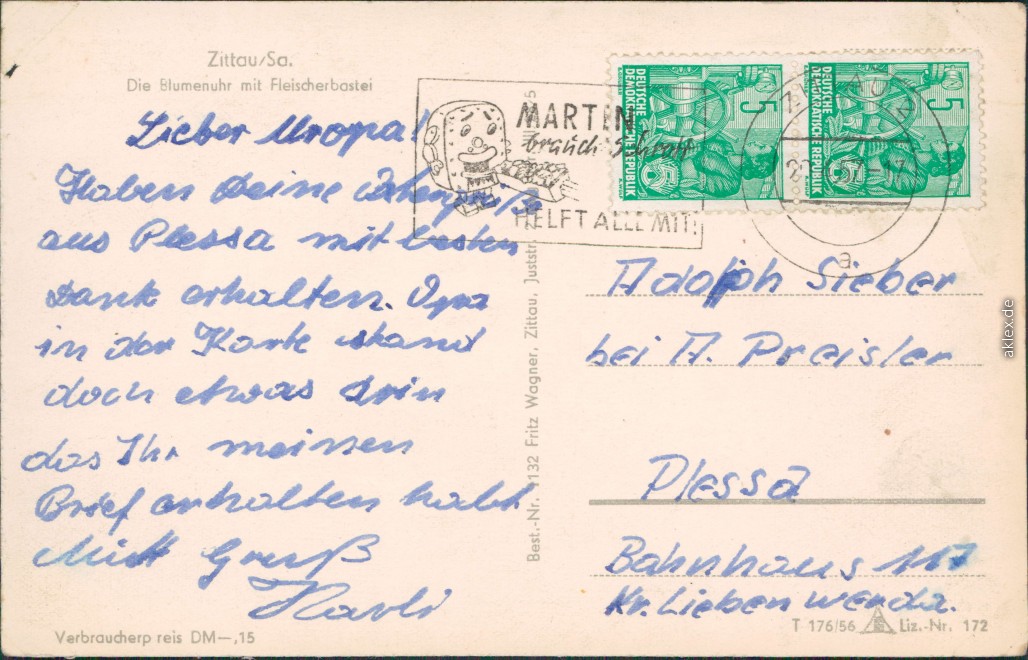 Zittau/Sa.
Die Blumenuhr mit Fleischerbastei
Lieber Uropa!
Haben Deine
aus Plessa mit besten
Dank erhalten. Opa
in der Karte stand
doch etwas drin
das Ihr meinen
Brief erhalten habt
Mit Gruß
Verbraucherpreis DM—,15
Best.-Nr. 1132 Fritz Wagner, Zittau, Juststr.
MARTIN
braucht Schrott
HELFT ALLE MIT!
DEUTSCHE
DEMOKRATISCHE REPUBLIK
5
DEUTSCHE
DEMOKRATISCHE REPUBLIK
5
a
Adolph Sieber
bei A. Preisler
Plessa
Bahnhaus 117
Kr. Liebenwerda.
T 176/56 Liz.-Nr. 172
aklex.de